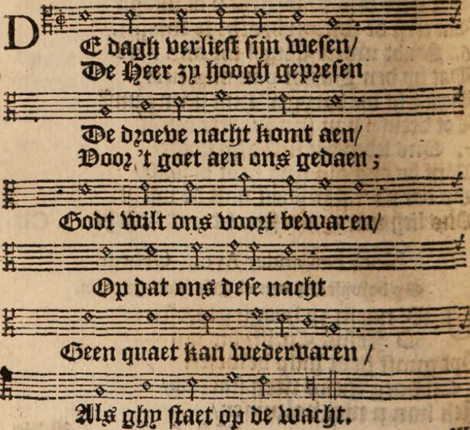 DE dagh verliest sijn wesen/
De Heer zy hoogh gepresen
De droeve nacht komt aen/
Voor 't goet aen ons gedaen;
Godt wilt ons voort bewaren/
Op dat ons dese nacht
Geen quaet kan wedervaren /
Als ghy staet op de wacht.